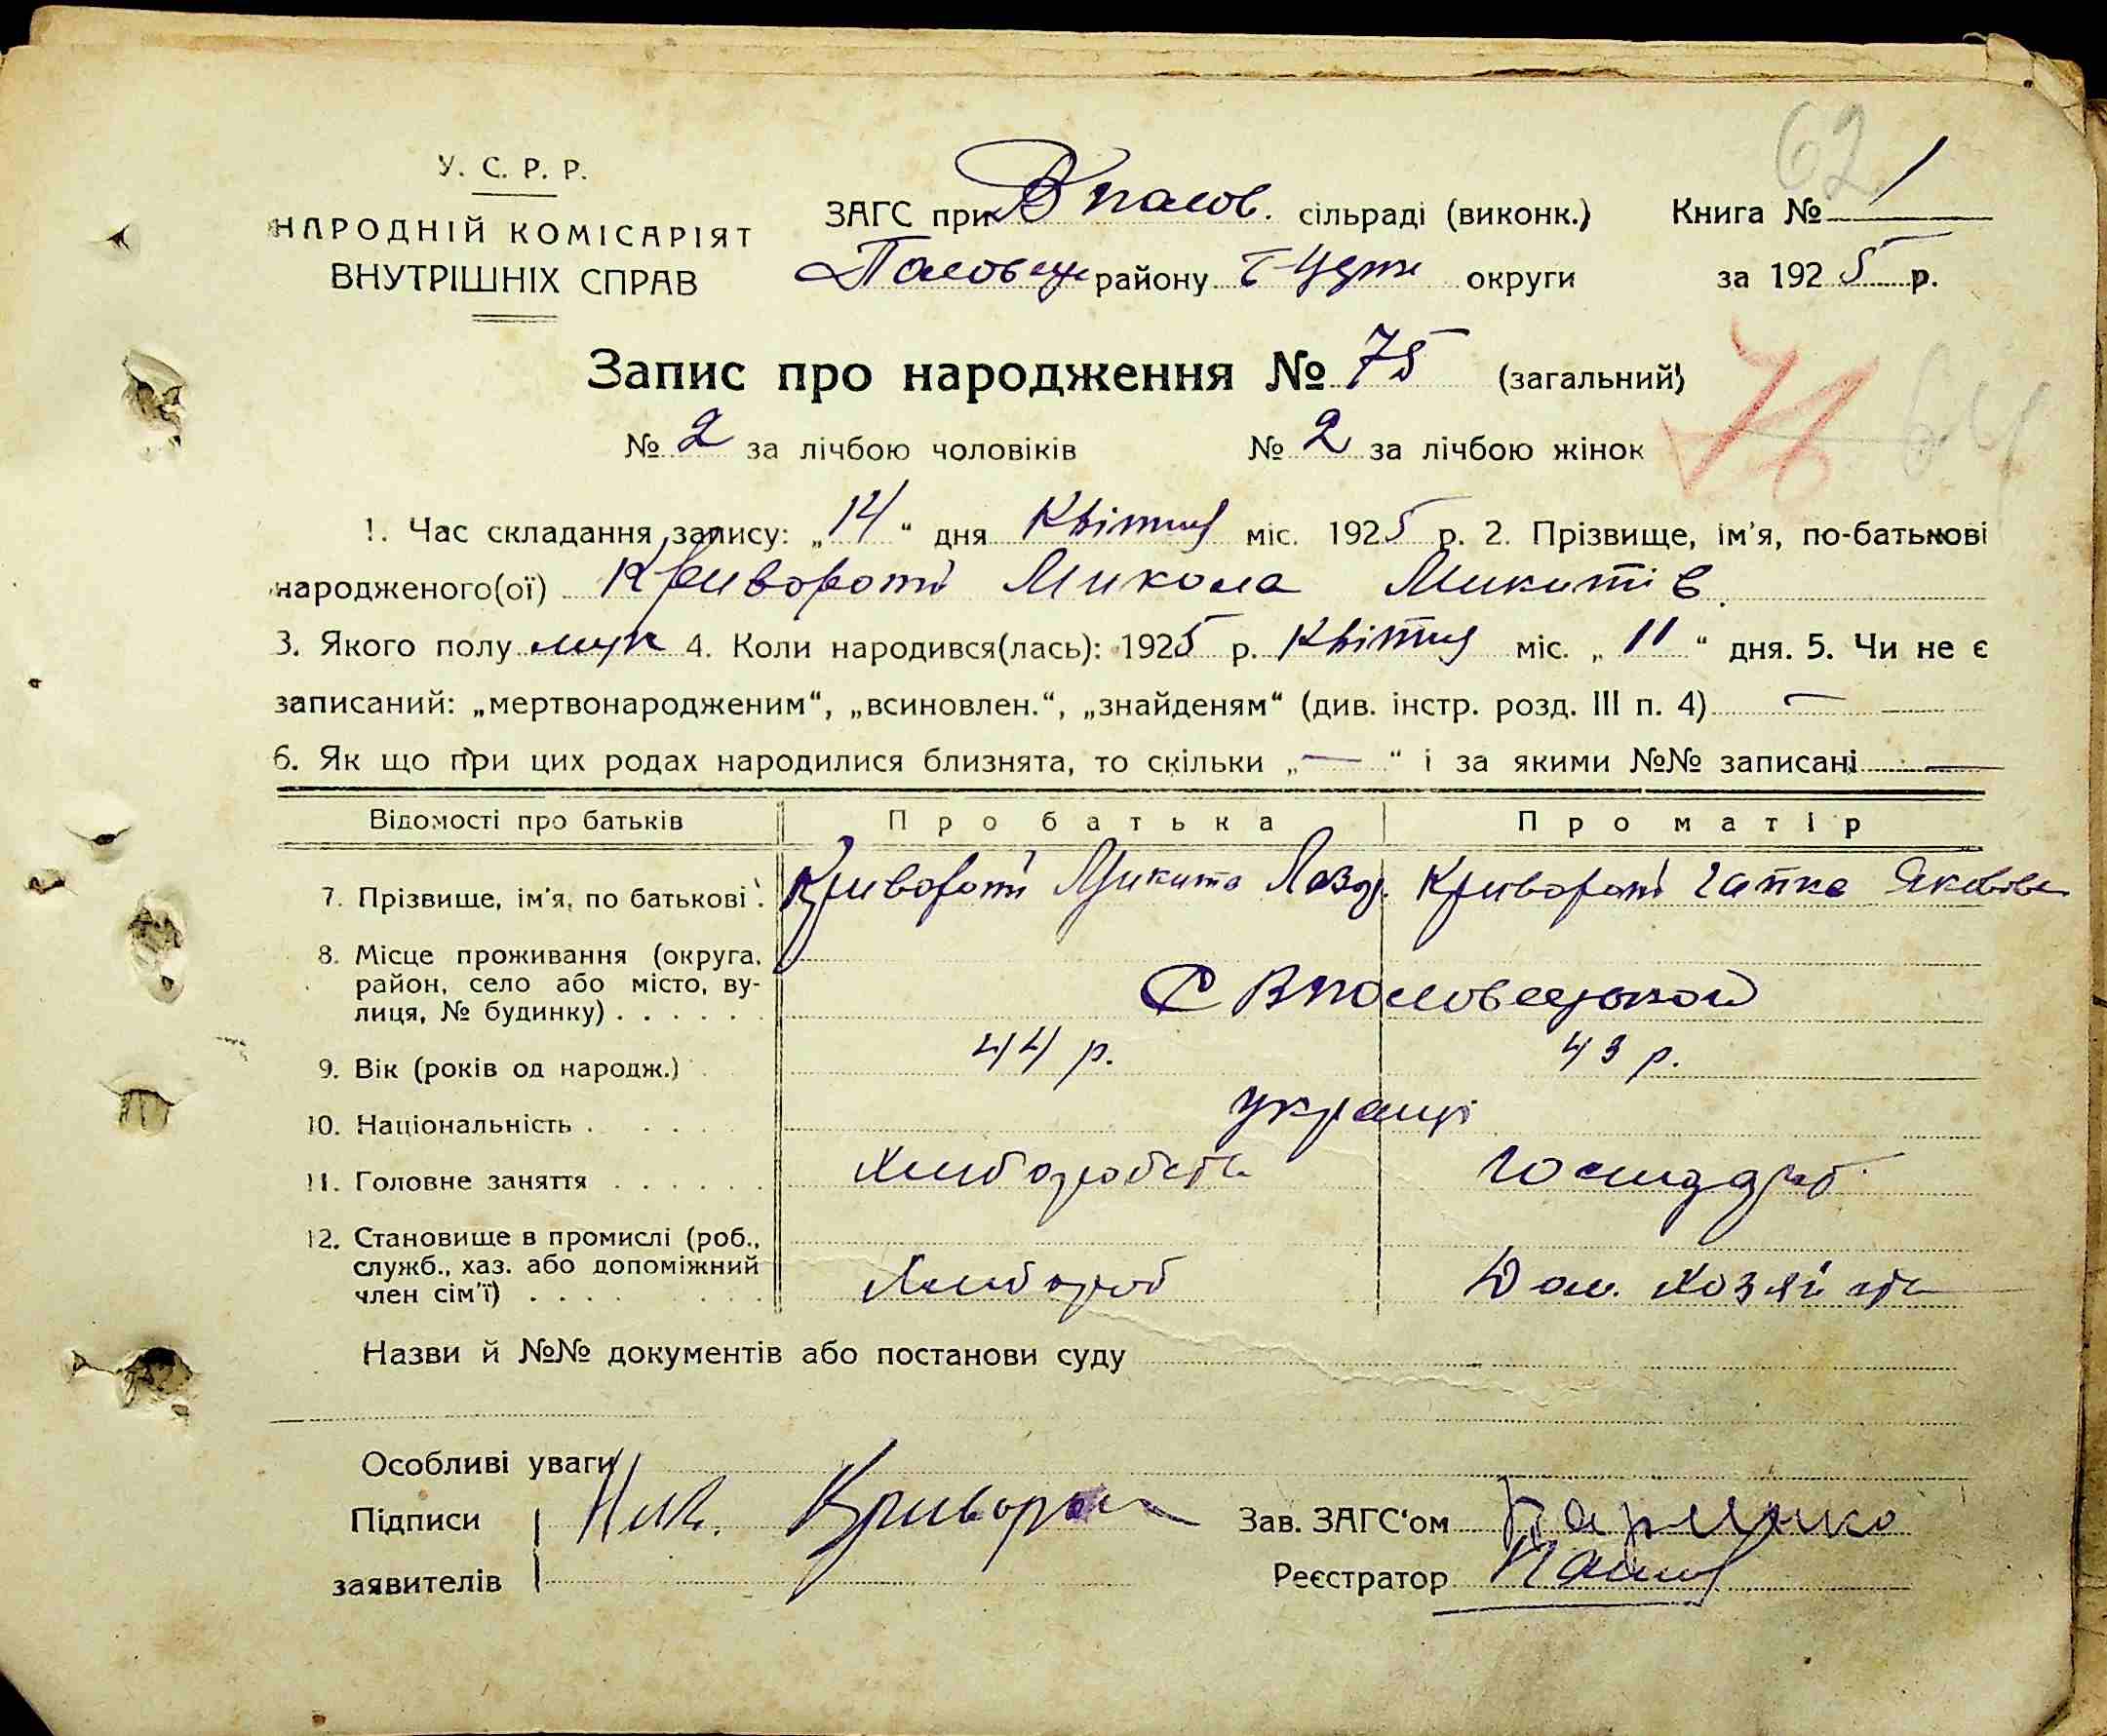 62
У. С. Р. Р.
НАРОДНІЙ КОМІСАРІЯТ
ВНУТРІШНІХ СПРАВ
ЗАГС при В полов. сільраді (виконк.) Книга № 1
Половец району Б-Церк округи за 1925 р.
Запис про народження № 75 (загальний)
№ 2 за лічбою чоловіків № 2 за лічбою жінок
1. Час складання запису: „14“ дня Квітня міс. 1925 р. 2. Прізвище, ім'я, по-батькові
народженого(ої) Криворот Микола Микитів.
3. Якого полу муж 4. Коли народився(лась): 1925 р. Квітня міс. „11“ дня. 5. Чи не є
записаний: „мертвонародженим“, „всиновлен.“, „знайденям“ (див. інстр. розд. III п. 4) —
6. Як що при цих родах народилися близнята, то скільки „—“ і за якими №№ записані —
Відомості про батьків Про батька Про матір
7. Прізвище, ім'я, по батькові. Криворот Микита Лазар. Криворот Гапка Яковова
8. Місце проживання (округа,
район, село або місто, ву-
лиця, № будинку) . . . . . . С Вполовецькои
9. Вік (років од народж.) 44 р. 43 р.
10. Національність . . . . украинці
11. Головне заняття . . . . . . Хлиборобств
12. Становище в промислі (роб.,
служб., хаз. або допоміжний
член сім'ї) . . . . Хлибороб Дом. Хозяйств
Назви й №№ документів або постанови суду
Особливі уваги
Підписи Ник. Криворот Зав. ЗАГС'ом
заявителів Реєстратор